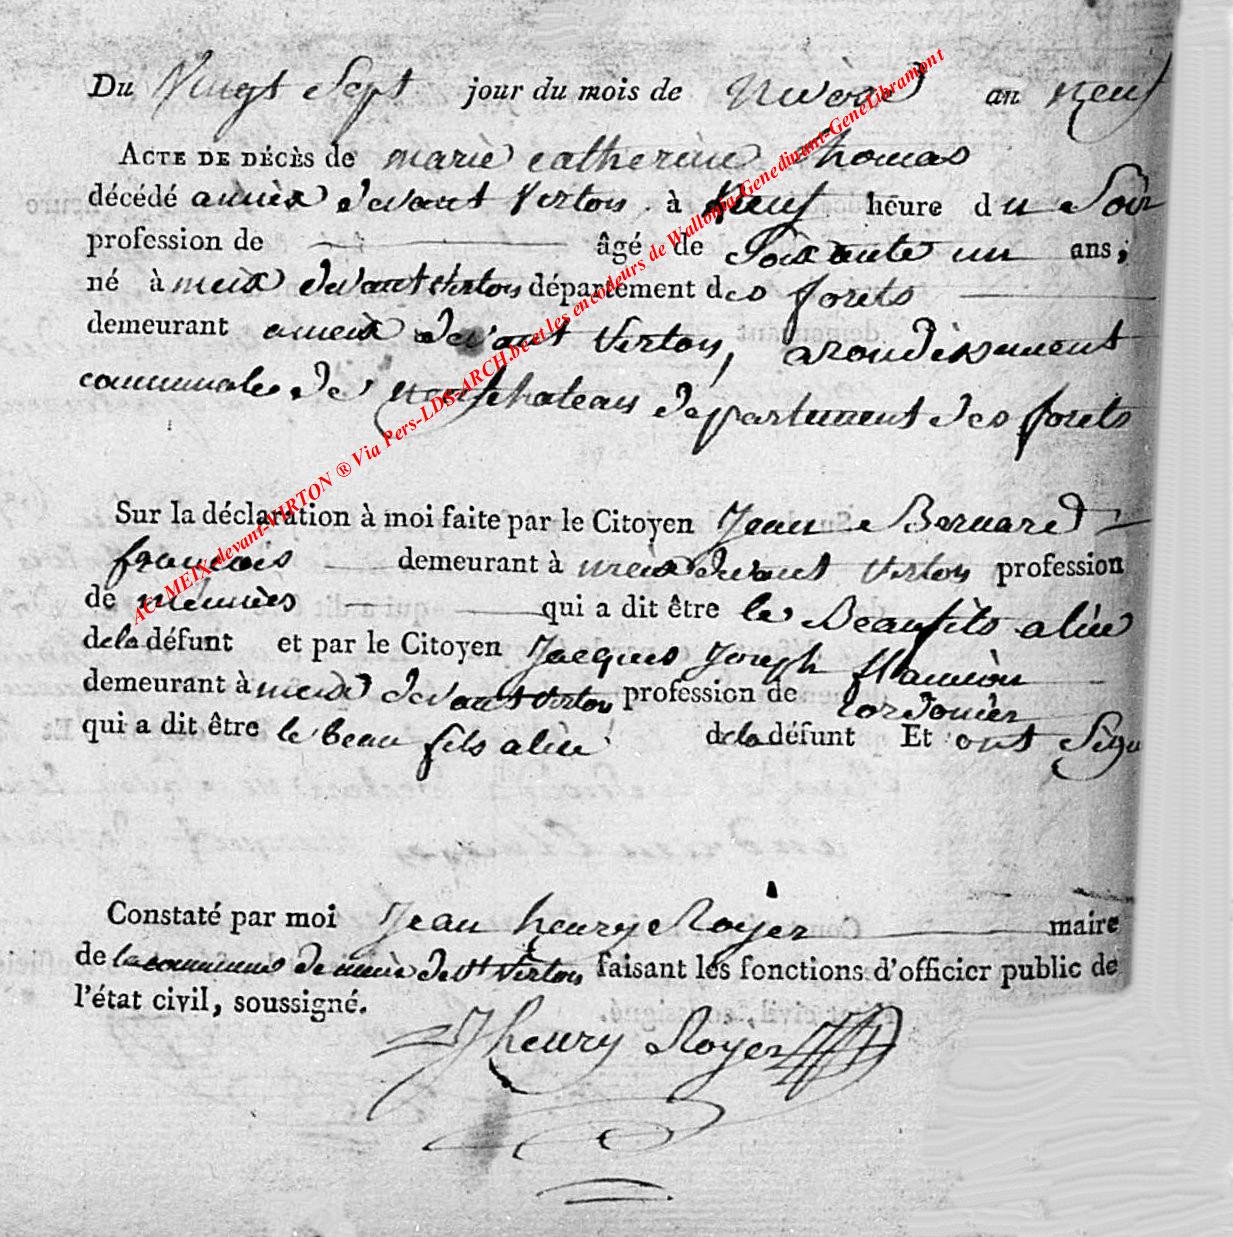 Du Vingt Sept jour du mois de Nivôse an neuf
ACTE DE DÉCÈS de marie catherine thomas
décédé a meix devant Virton à Neuf heure du Soir
profession de âgé de Soixante un ans,
né à meix devant virton département des forets
demeurant a meix devant Virton, arondissement
communale de neufchateau departement des forets
Sur la déclaration à moi faite par le Citoyen Jean Bernard
françois demeurant à meix devant virton profession
de qui a dit être le Beaufils alié
dela défunt et par le Citoyen Jacques Joseph
demeurant à meix devant virton profession de cordonier
qui a dit être le beau fils alié dela défunt Et ont Signé
Constaté par moi Jean henry Royer maire
de la commune de meix devt Virton faisant les fonctions d'officier public de
l'état civil, soussigné.
Jhenry Royer
AC-MEIX-devant-VIRTON ® Via Pers-LDS-ARCH.be et les encodeurs de Wallonia-Genedinant-GeneLibramont